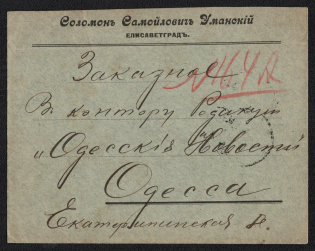 Соломонъ Самойловичъ Уманскій
ЕЛИСАВЕТГРАДЪ.
Заказное
Въ контору Редакціи
„Одесскія Новости
Одесса
Екатерининская